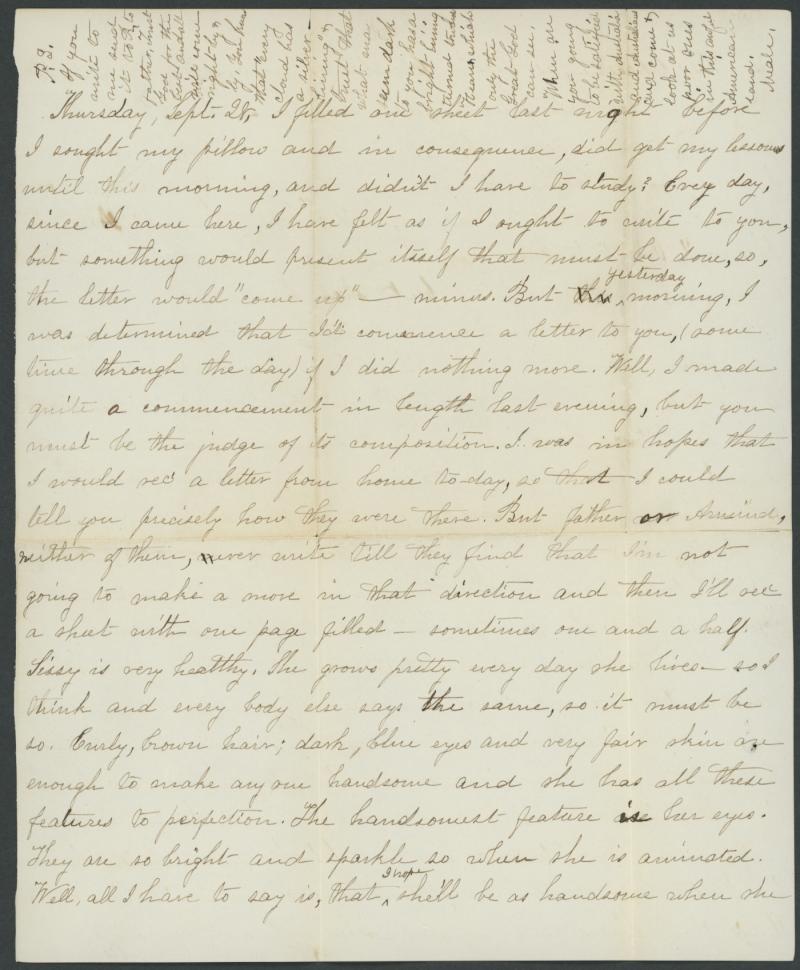 P.S.
If you
write to
me send
it to R. to
Father, trust
God for the
rest and all
will come
right by &
by. For him
that "every
cloud has
a silver-
lining" &
trust that
what ma
seem dark
to you has a
bright lining
turned towards
Heaven, which
only the
Great God
can see.
When are
you going
to be satisfied
with
and
and come &
look at us
poor ones
in this
American
land.
Near.
Thursday, Sept. 28, I filled one sheet last night before
I sought my pillow and in consequence, did get my lessons
until this morning, and didn't I have to study? Evey day,
since I came here, I have felt as if I ought to write to you,
but something would present itsself that must be done, so,
the letter would "come up" — minus. But this yesterday morning, I
was determined that I'd commence a letter to you, (some
time through the day) if I did nothing more. Well, I made
quite a commencement in length last evening, but you
must be the judge of its composition. I was in hopes that
I would rec' a letter from home to-day, so that I could
tell you precisely how they were there. But father or
neither of them, never write till they find that I'm not
going to make a move in that direction and then I'll rec
a sheet with one page filled — sometimes one and a half.
Sissy is very healthy. She grows pretty every day she lives — so I
think and every body else says the same, so it must be
so. Curly, brown hair; dark, blue eyes and very fair skin are
enough to make any one handsome and she has all these
features to perfection. The handsomest feature is her eyes.
They are so bright and sparkle so when she is animated.
Well, all I have to say is, that I hope she'll be as handsome when she